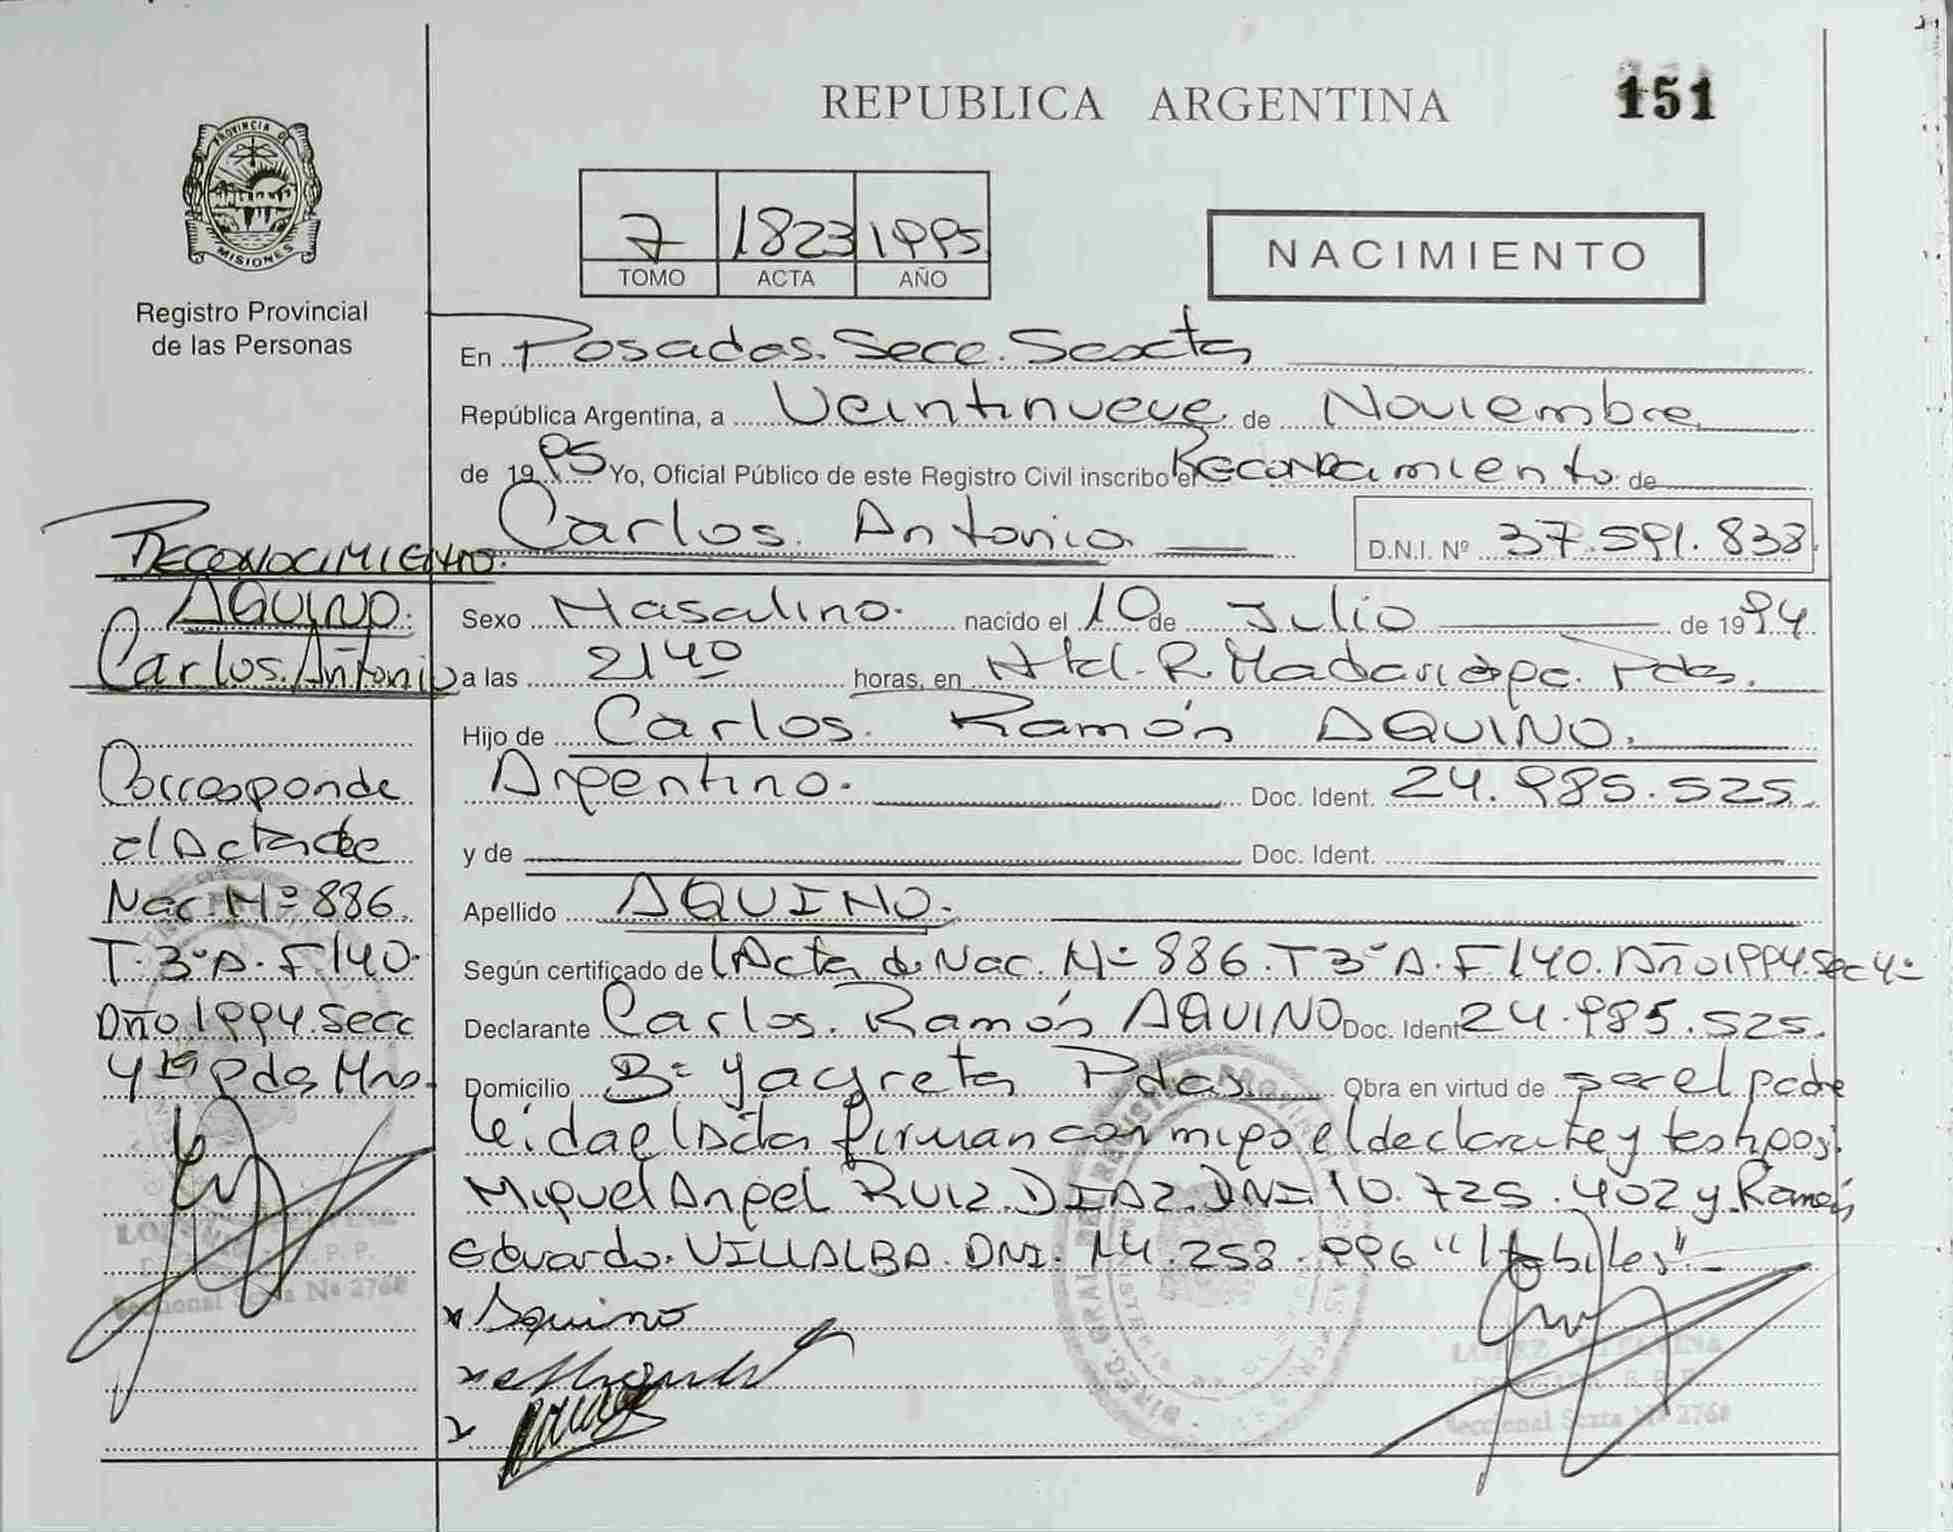 REPUBLICA ARGENTINA
151
PROVINCIA DE
MISIONES
Registro Provincial
de las Personas
7 1823 1995
TOMO ACTA AÑO
NACIMIENTO
En Posadas. Secc. Sexta
República Argentina, a Veintinueve de Noviembre
de 1995 Yo, Oficial Público de este Registro Civil inscribo el Reconocimiento de
Carlos Antonio D.N.I. Nº 37.591.838
RECONOCIMIENTO.
AQUINO.
Carlos Antonio
Corresponde
al Acta de
Nac. Nº 886.
T. 3º A. F 140.
Año 1994. Secc
4ta Pdas Mns.
Sexo Masculino. nacido el 10 de Julio de 1994
a las 2140 horas, en Htal. R. Madariaga. Pdas.
Hijo de Carlos Ramón AQUINO.
Argentino. Doc. Ident. 24.985.525.
y de Doc. Ident.
Apellido AQUINO.
Según certificado de l Acta de Nac. Nº 886. T 3º A. F 140. Año 1994. Sec 4º
Declarante Carlos Ramón AQUINO Doc. Ident 24.985.525.
Domicilio Bº Yacyreta Pdas. Obra en virtud de ser el padre
leída el Acta firman conmigo el declarante y testigos:
Miguel Angel RUIZ DIAZ. DNI. 10.725.402 y Ramón
Eduardo VILLALBA. DNI. 14.258.996 "Hábiles"
x Aquino
x
x
Seccional Sexta Nº 2768
Seccional Sexta Nº 2768